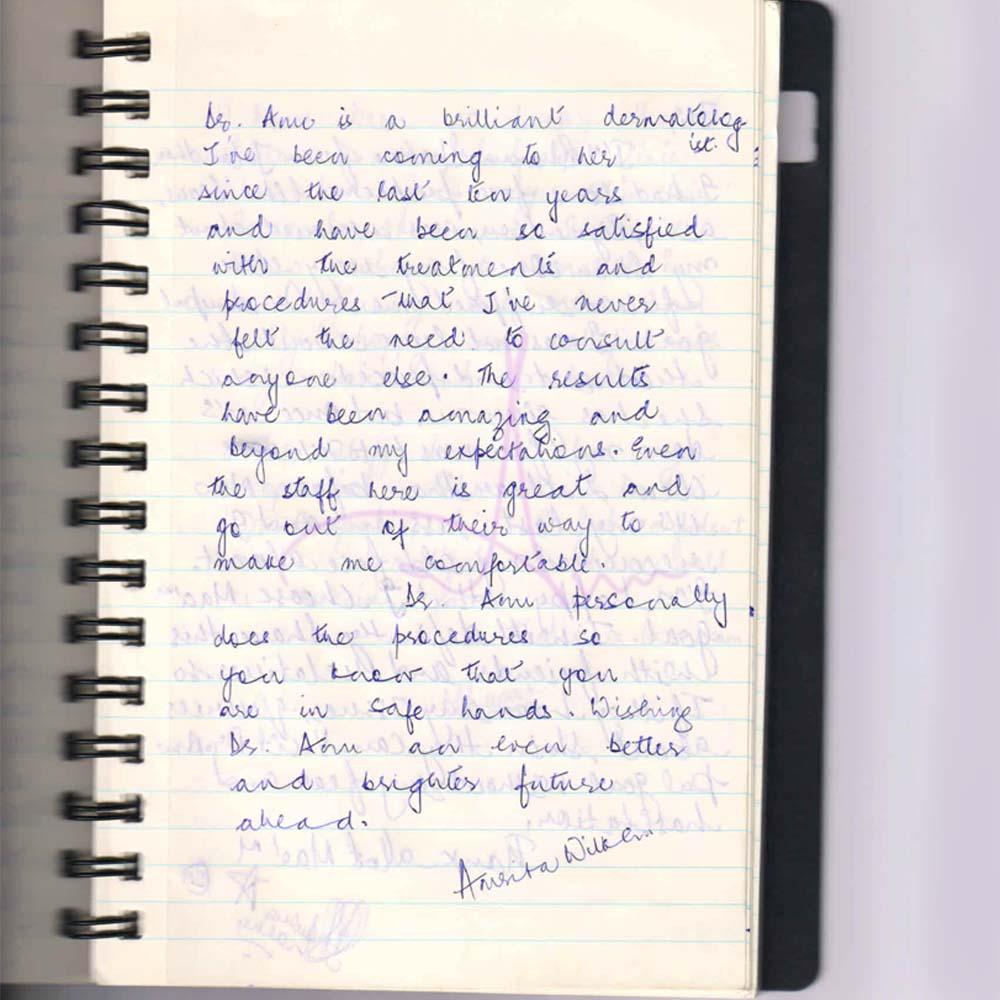 Dr. Anu is a brilliant dermatolog
ist.
I've been coming to her
since the last ten years
and have been so satisfied
with the treatments and
procedures that I've never
felt the need to consult
anyone else. The results
have been amazing and
beyond my expectations. Even
the staff here is great and
go out of their way to
make me comfortable.
Dr. Anu personally
does the procedures so
you know that you
are in safe hands. Wishing
Dr. Anu an even better
and brighter future
ahead.
Amrita